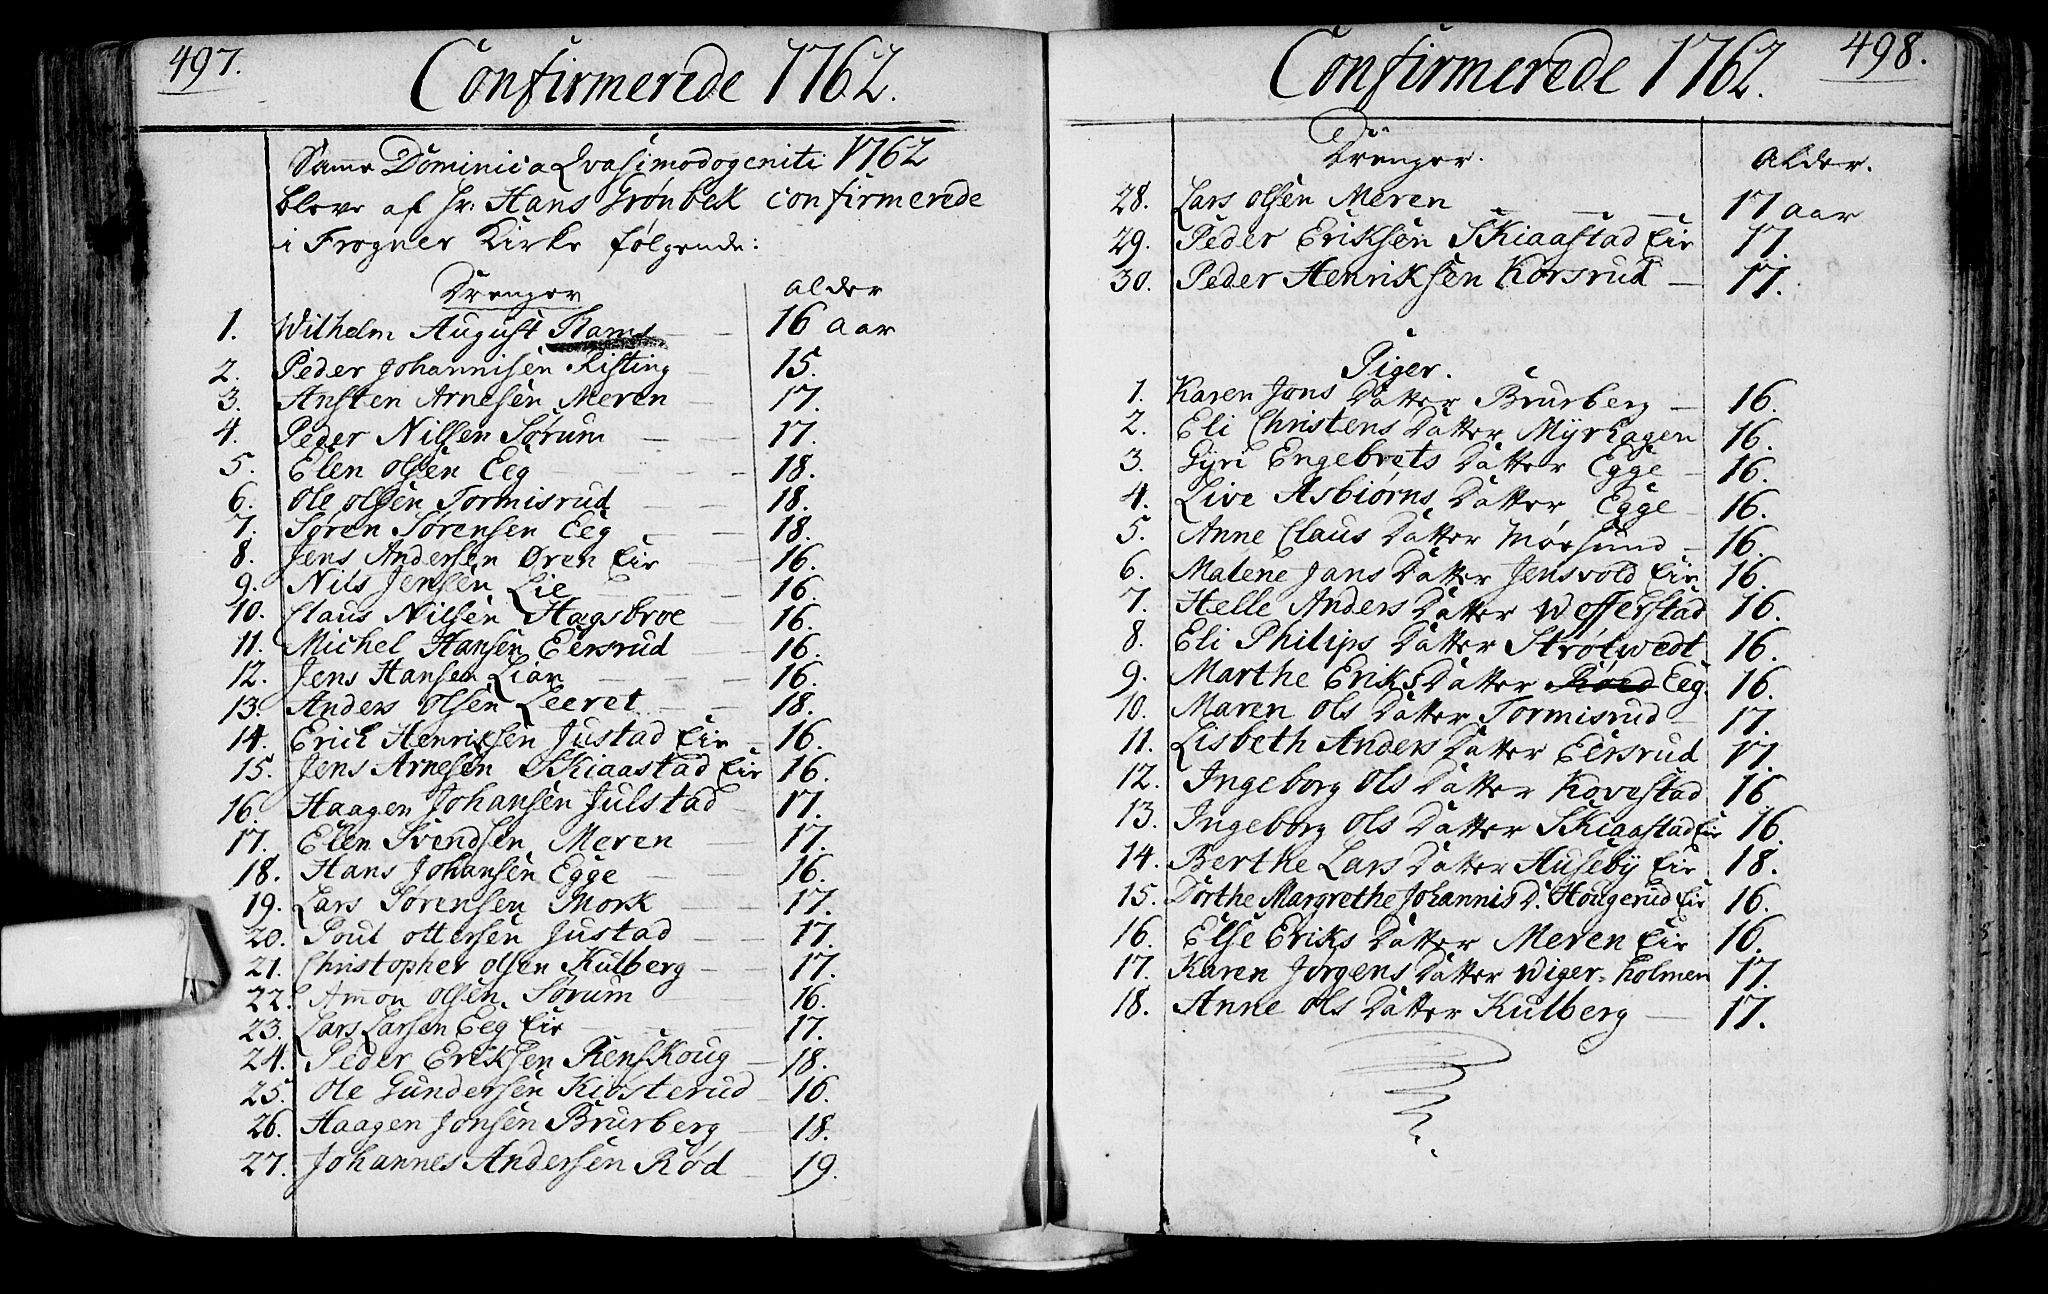 497.
Confirmerede 1762.
Samme Dominica Qvasimodogeniti 1762
bleve af Hr: Hans Grønbek confirmerede
i Frogner Kirke følgende:
Drenger alder
1. Wilhelm August Rams — — 16 aar
2. Peder Johannisen Risting — 15.
3. Ansten Arnesen Meren — 17.
4. Peder Nilsen Sørum — — 17.
5. Elen Olsen Eeg — — 18.
6. Ole Olsen Tormisrud — — 18.
7. Søren Sørensen Eeg — — 18.
8. Jens Andersen Øren Eie — 16.
9. Nils Jensen Lie — — 16.
10. Claus Nilsen Hagsbroe — 16.
11. Michel Hansen Eersrud — 16.
12. Jens Hansen Lian — — 16.
13. Anders Olsen Leeret — — 18.
14. Erich Henriksen Justad Eie — 16.
15. Jens Arnesen Skiaastad Eie 16.
16. Haagen Johansen Julstad — 17.
17. Elen Svendsen Meren — 17.
18. Hans Johansen Egge — — 16.
19. Lars Sørensen Mork — — 17.
20. Poul Ottersen Justad — — 17.
21. Christopher Olsen Kulberg — 17.
22. Amon Olsen Sørum — — 16.
23. Lars Larsen Eeg Eie — — 17.
24. Peder Eriksen Renskoug — 18.
25. Ole Gundersen Kiosterud — 16.
26. Haagen Jonsen Brurberg — 18.
27. Johannes Andersen Rød — 19.
498.
Confirmerede 1762.
Drenger. Alder.
28. Lars Olsen Meren — — — 17 aar
29. Peder Eriksen Skiaastad Eie 17.
30. Peder Henriksen Korsrud — 17.
Piger.
1. Karen Jons Datter Brurberg — 16.
2. Eli Christens Datter Myrhagen 16.
3. Gyri Engebrets Datter Egge — 16.
4. Live Asbiørns Datter Egge — 16.
5. Anne Claus Datter Møesund — 16.
6. Malene Jans Datter Jensvold Eie 16.
7. Helle Anders Datter Wefferstad 16.
8. Eli Philips Datter Strøtwedt 16.
9. Marthe Eriks Datter Röed Eeg. 16.
10. Maren Ols Datter Tormisrud — 17.
11. Lisbeth Anders Datter Eersrud 17.
12. Ingeborg Ols Datter Kovestad 16
13. Ingeborg Ols Datter Skiaastad Eie 16.
14. Berthe Lars Datter Huseby Eie 18.
15. Dorthe Margrethe Johannis D. Hougerud Eie 16.
16. Else Eriks Datter Meren Eie 16.
17. Karen Jørgens Datter Wiger-holmen 17.
18. Anne Ols Datter Kulberg — 17.